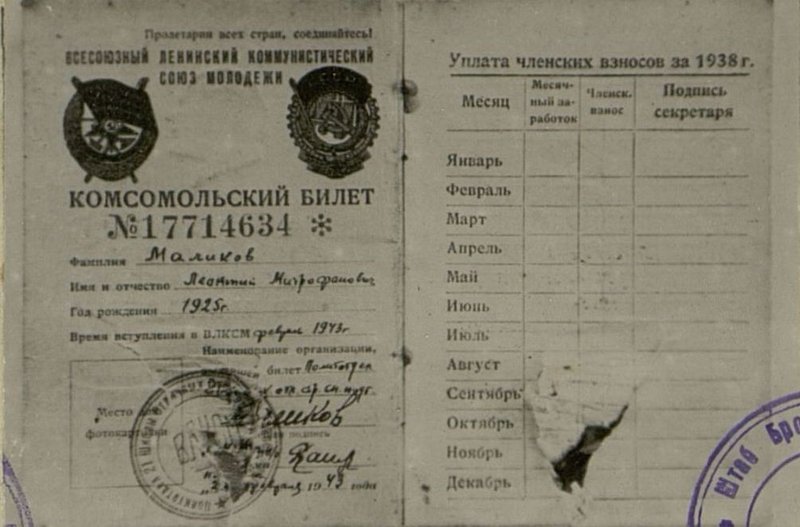 Пролетарии всех стран, соединяйтесь!
ВСЕСОЮЗНЫЙ ЛЕНИНСКИЙ КОММУНИСТИЧЕСКИЙ
СОЮЗ МОЛОДЕЖИ
КОМСОМОЛЬСКИЙ БИЛЕТ
№17714634 *
Фамилия Маликов
Имя и отчество Леонтий Митрофанович
Год рождения 1925г
Время вступления в ВЛКСМ февраль 1943г
Наименование организации,
билет Политотдел
Место для
фотокарточки
подпись
февраля 1943 года
Уплата членских взносов за 1938 г.
Месяц
Месяч-
ный за-
работок
Членск.
взнос
Подпись
секретаря
Январь
Февраль
Март
Апрель
Май
Июнь
Июль
Август
Сентябрь
Октябрь
Ноябрь
Декабрь
Штаб